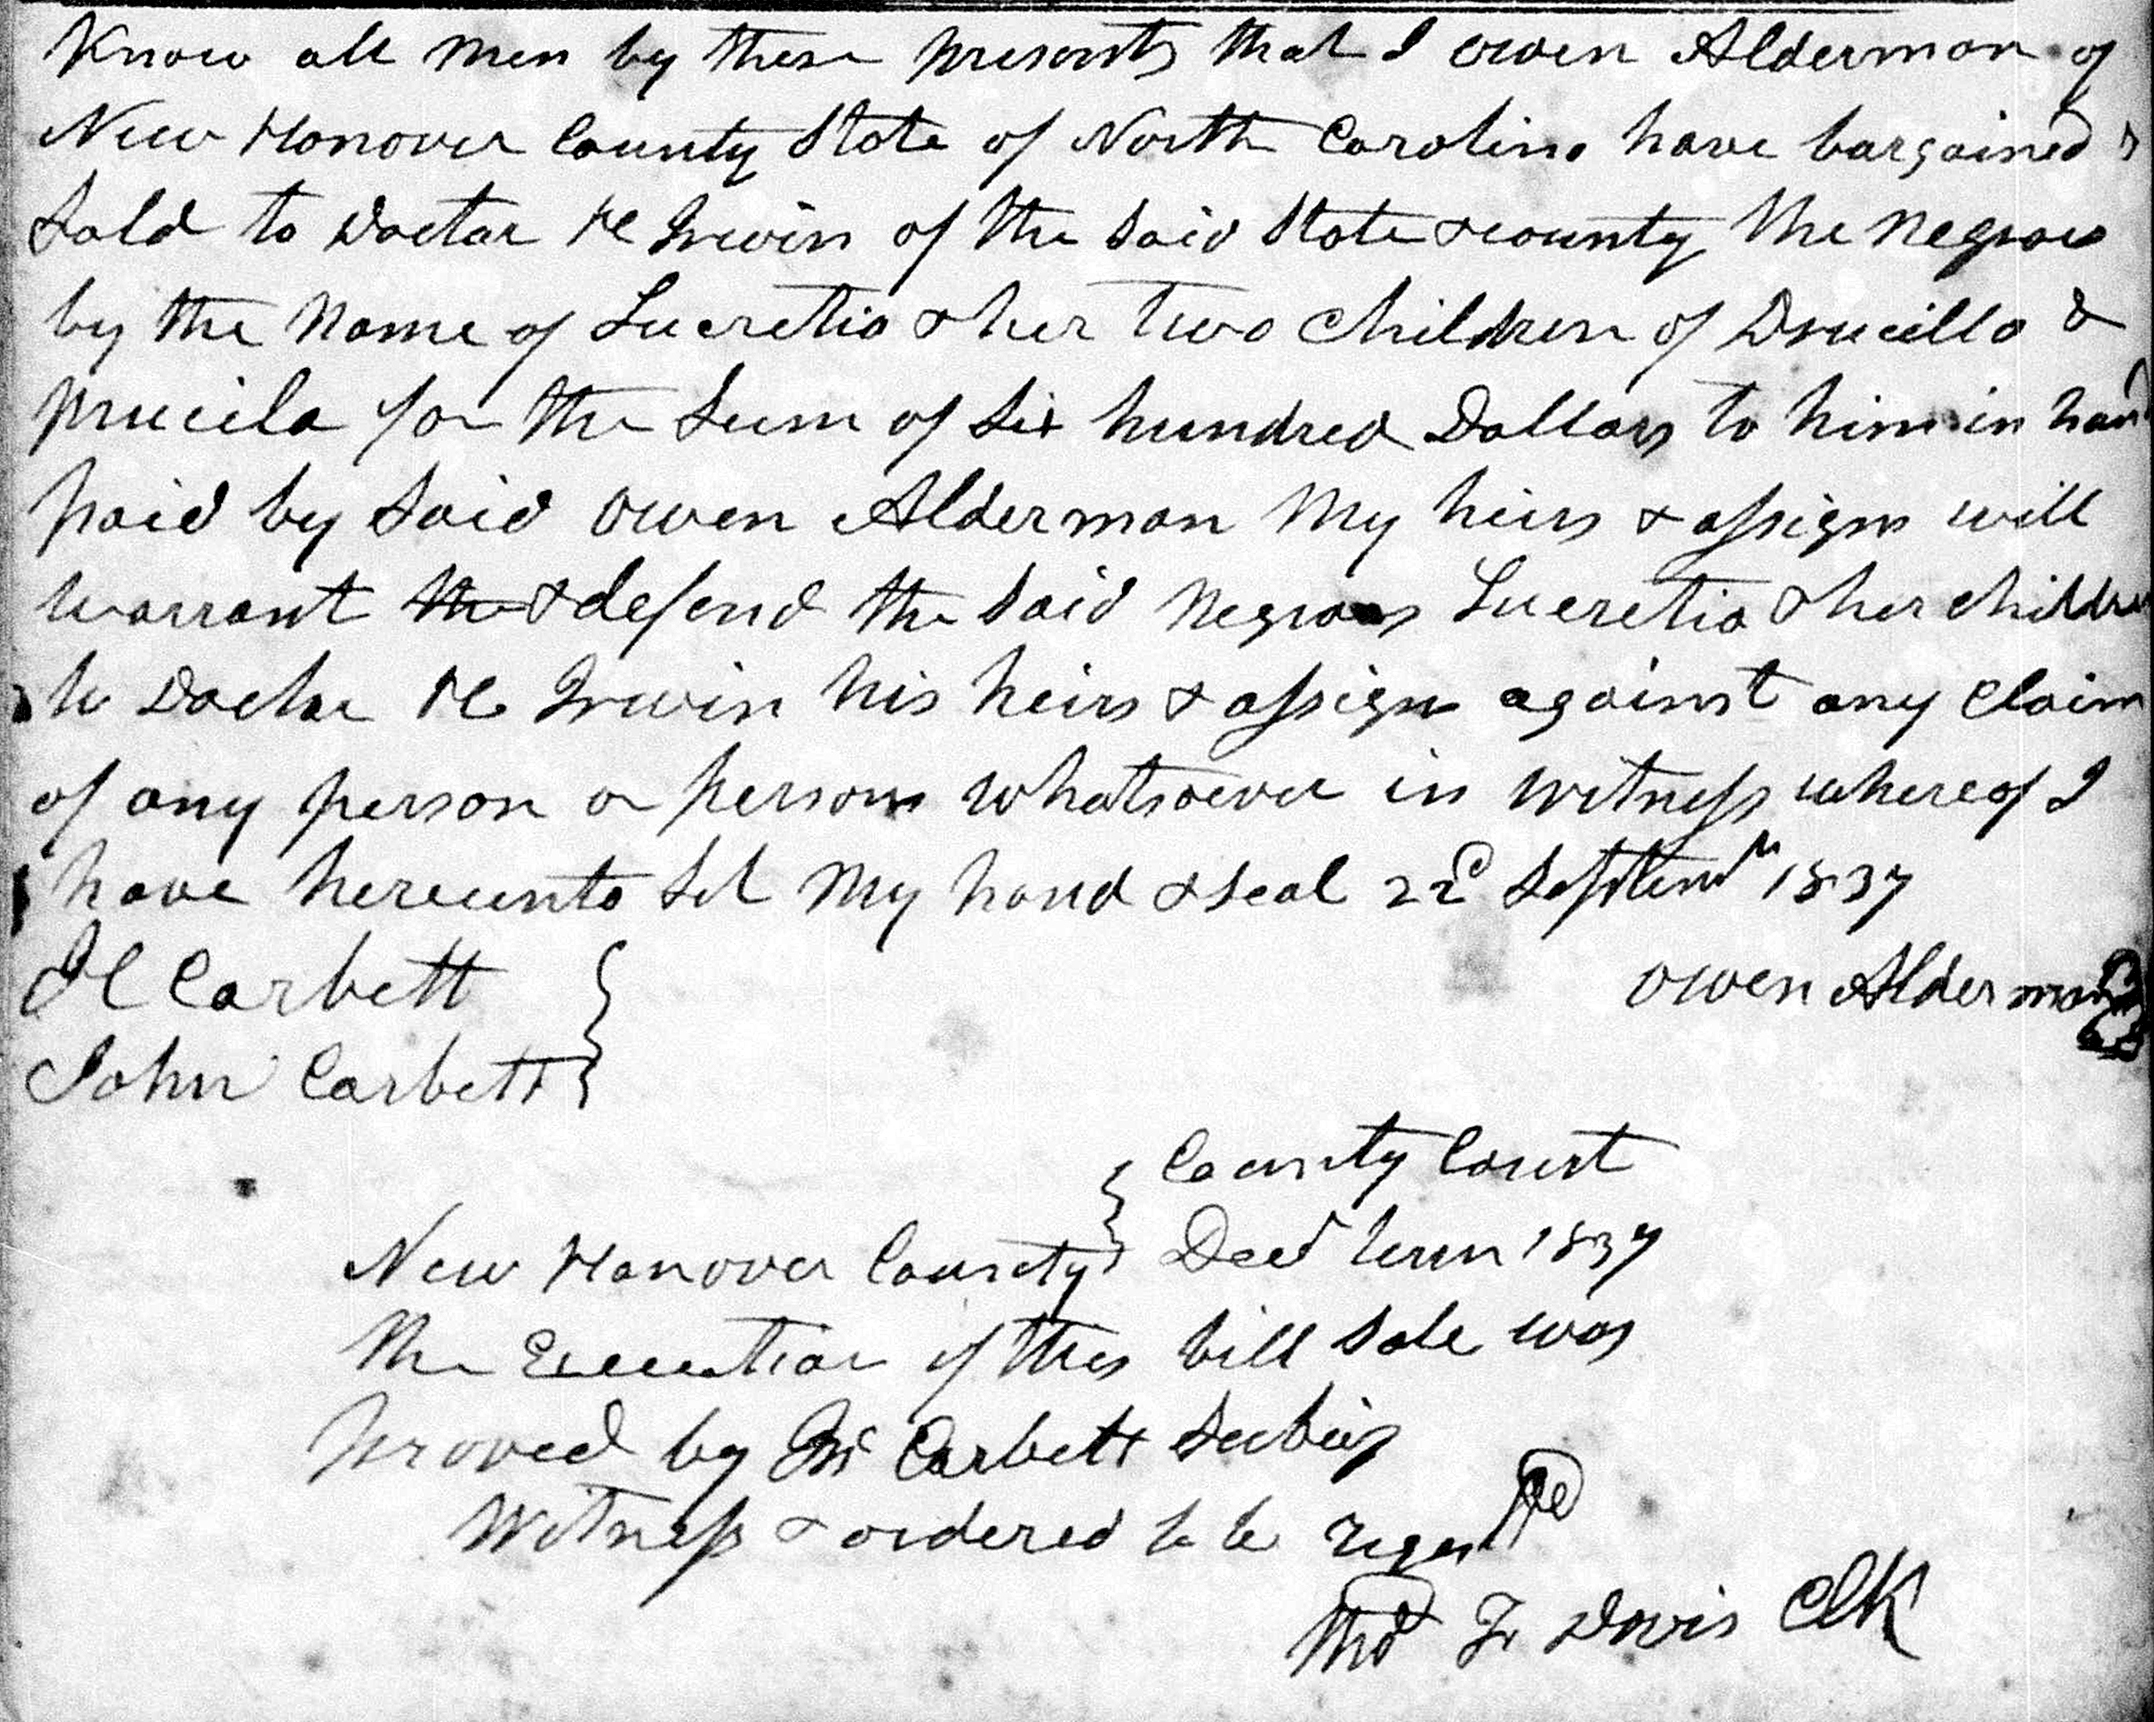 Know all men by these presents that I Owen Alderman of
New Hanover County State of North Carolina have bargained &
Sold to Doctor H Irwin of the Said State & county the Negroes
by the Name of Lucretia & her Two Children of Drucilla &
Prucila for the Sum of Six hundred Dollars to him in hand
paid by Said Owen Alderman My heirs & assigns will
warrant the & defend the Said Negroes Lucretia & her children
to Doctor H Irwin his heirs & assigns against any Claim
of any person or persons whatsoever in witness whereof I
have hereunto Set My hand & seal 22d Septemr 1837
Owen Alderman
Corbett
John Corbett
County Court
New Hanover County Decr term 1837
The Execution of this bill Sale was
proved by Corbett Subing
Witness & ordered to be
Thos F Davis Clk